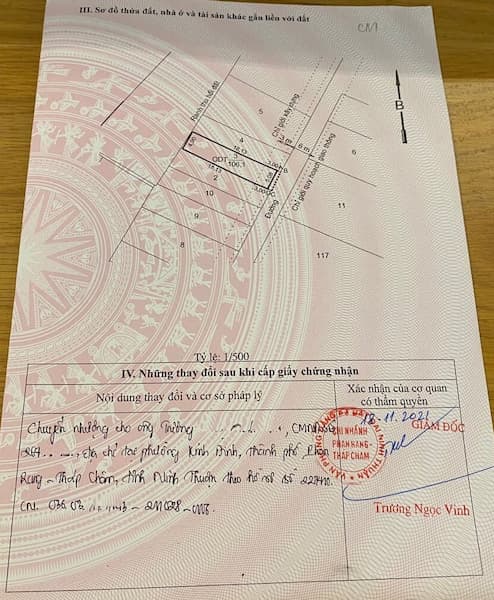 III. Sơ đồ thửa đất, nhà ở và tài sản khác gắn liền với đất
CM
Ranh thu hồi đất
Chỉ giới xây dựng
Chỉ giới quy hoạch giao thông
Đường
B
5
4
6 m
6
18,13
ODT
3
106,1
18,13
2
10
9
8
11
117
3,00
Tỷ lệ: 1/500
IV. Những thay đổi sau khi cấp giấy chứng nhận
Nội dung thay đổi và cơ sở pháp lý
Xác nhận của cơ quan có thẩm quyền
Chuyển nhượng cho ông Trường
địa chỉ tại phường Kinh Dinh, thành phố Phan
Rang - Tháp Chàm, tỉnh Ninh Thuận theo hồ sơ số
CN.
18-11-2021
GIÁM ĐỐC
CHI NHÁNH
PHAN RANG-
THÁP CHÀM
Trương Ngọc Vinh